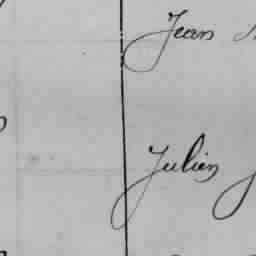 Jean
Julien